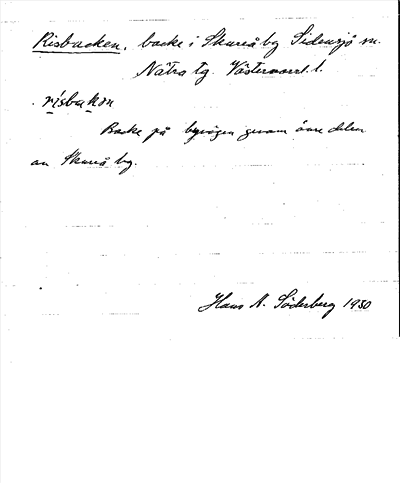 Risbacken, backe i Skureå by Sidensjö sn.
Nätra tg. Västernorrl. l.
risbakɷn
Backe på byvägen genom övre delen
av Skureå by.
Hans A. Söderberg 1930